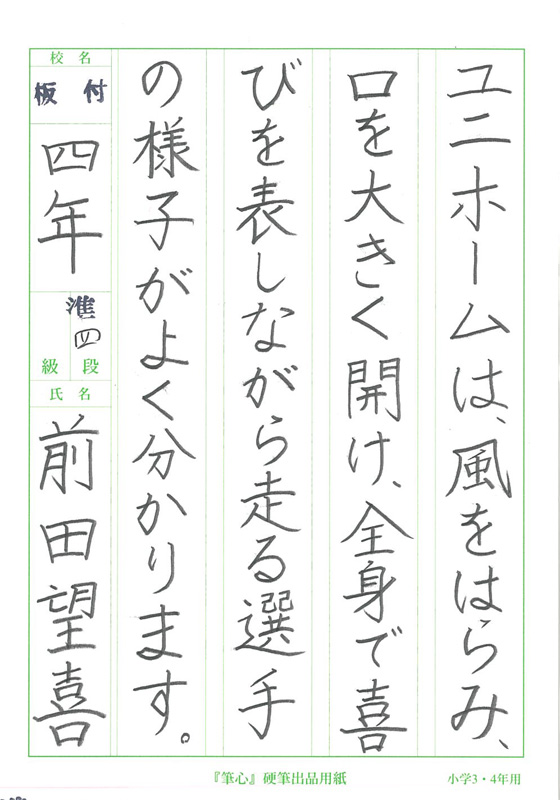 ユニホームは、風をはらみ、
口を大きく開け、全身で喜
びを表しながら走る選手
の様子がよく分かります。
校名
板付
四年
準四
級段
氏名
前田望喜
『筆心』硬筆出品用紙
小学3・4年用